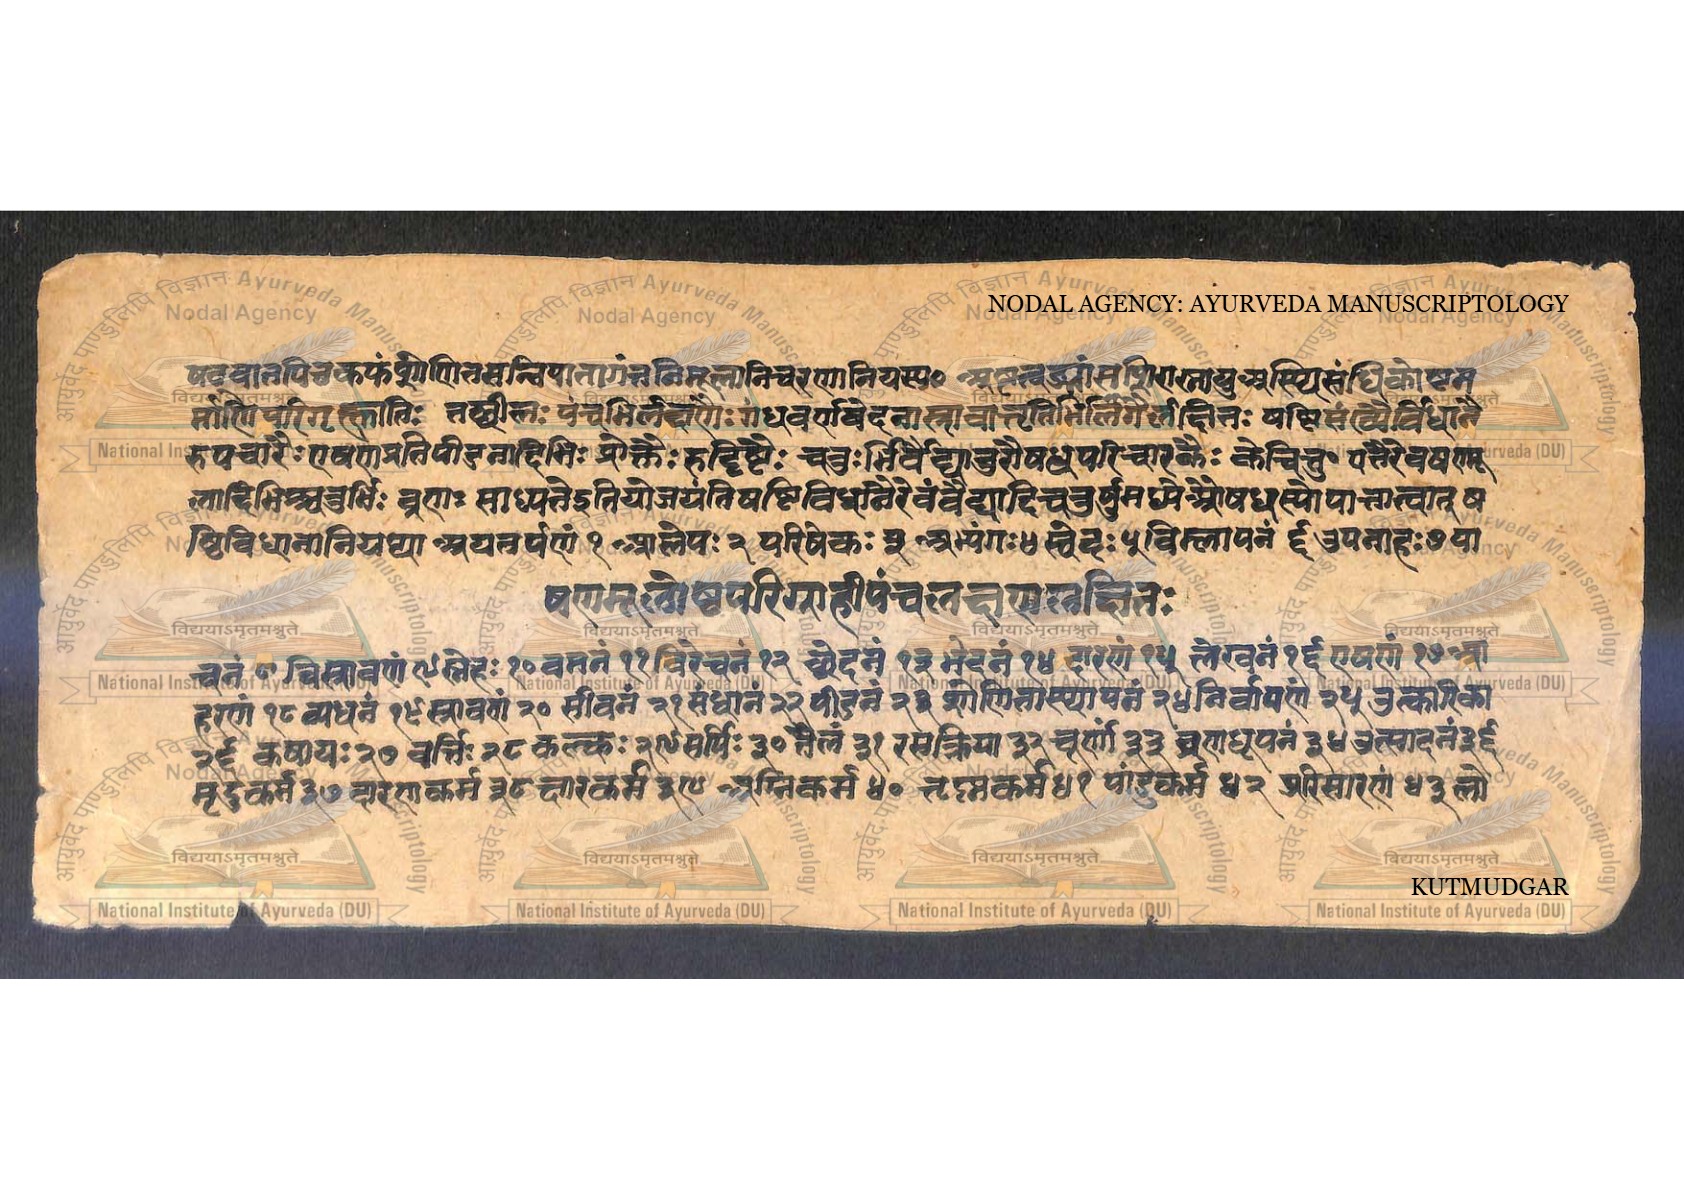 NODAL AGENCY: AYURVEDA MANUSCRIPTOLOGY
षट् वातपित्तकफशोणितसन्निपातागंतुनिमूलानिचरणानियस्य० अष्टत्वङ्मांसशिरास्नायुअस्थिसंधिकोष्टम
र्माणिपरिगृह्णातिः तच्छीलः पंचभिर्लक्षणैः गंधवर्णवेदनास्रावाकृतिभिर्लिंगैर्लक्षितः षष्टिसंख्यैर्विधानै
रुपचारैः एषणप्रतिपीडनादिभिः प्रोक्तैः रुद्दिष्टैः चतुःभिर्वैद्यातुरौषधपरिचारकैः केचित्तु
लादिभिश्चतुर्भिः व्रणः साध्यते इतियोजयंतिषष्टिविधानैरेवंवैद्यादिचतुर्षुमध्येऔषधस्योपात्तत्वात् ष
ष्टिविधानानियथा अपतर्पणं १ आलेपः २ परिषेकः ३ अभ्यंगः ४ स्वेदः ५ विम्लापनं ६ उपनाहः ७ पा
षण्मूलोष्टपरिग्राहीपंचलक्षणलक्षितः
चनं ८ विस्रावणं ९ स्नेहः १० वमनं ११ विरेचनं १२ छेदनं १३ भेदनं १४ दारणं १५ लेखनं १६ एषणं १७ आ
हरणं १८ व्यधनं १९ स्रावणं २० सीवनं २१ संधानं २२ पीडनं २३ शोणितास्थापनं २४ निर्वापणं २५ उत्कारिका
२६ कषायः २७ वर्त्तिः २८ कल्कः २९ सर्पिः ३० तैलं ३१ रसक्रिया ३२ चूर्णं ३३ व्रणधूपनं ३४ उत्सादनं ३६
मृदुकर्म ३७ दारुणकर्म ३८ क्षारकर्म ३९ अग्निकर्म ४० कृष्णकर्म ४१ पांडुकर्म ४२ प्रतिसारणं ४३ लो
KUTMUDGAR